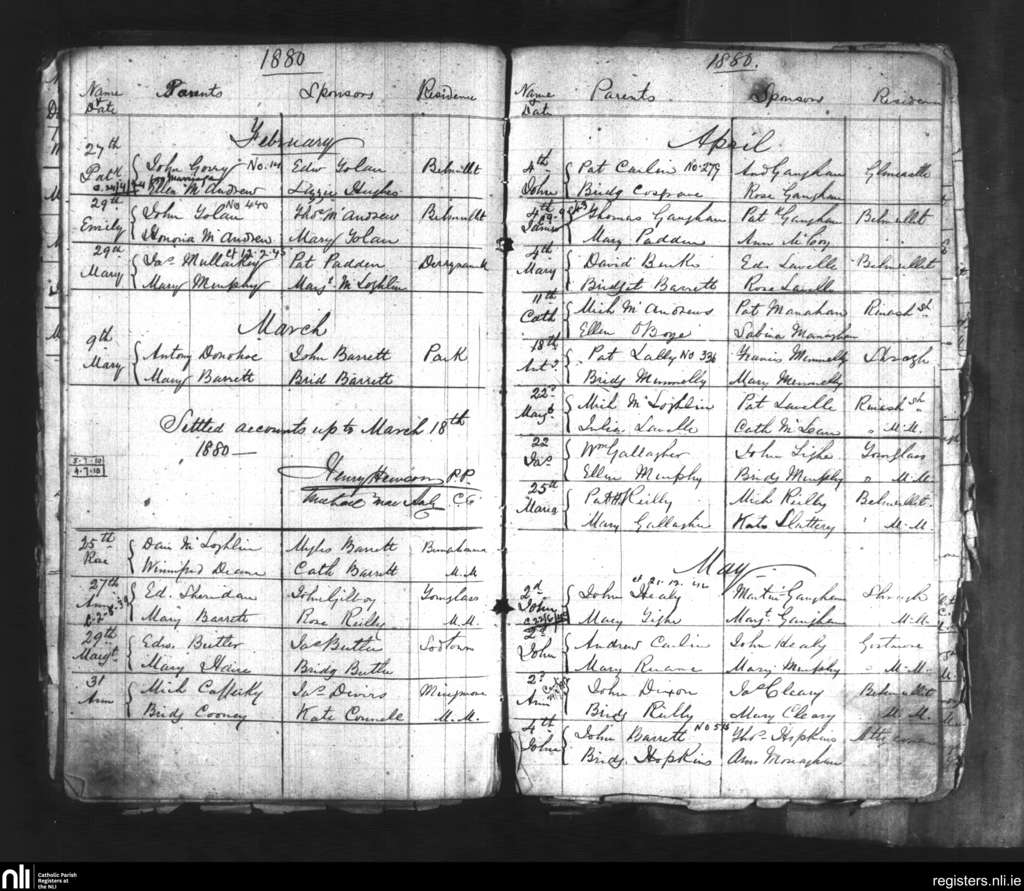 1880
Name & Date Parents Sponsors Residence
February
27th
Patk John Gorry No. 144 Edw Tolan Belmullet
Ellen McAndrew Lizzie Hughes
29th
Emily John Tolan No 440 Thos McAndrew Belmullet
Honoria McAndrew Mary Tolan
29th
Mary Jas Mullarkey Pat Padden
Mary Murphy Margt McLoghlin
March
9th
Mary Antony Donohoe John Barrett Park
Mary Barrett Brid Barrett
Settled accounts up to March 18th
1880 —
5.7.10
4.7.10
Henry Hewson P.P.
C.C.
25th
McLoghlin Myles Barrett
Winnifred Deane Cath Barrett M.M.
27th
Ann Ed. Sheridan John Gilboy Tonglass
Mary Barrett Rose Reilly M.M.
29th
Margt Edwd Butler Jas Butler
Mary Haire Bridg Butler
31
Ann Mich Cafferky Jas Devirs
Bridg Cooney Kate Connele M.M.
1880.
Name & Date Parents Sponsors Residence
April
4th
John Pat Carlin No 279 And Gaughan Glencastle
Bridg Cosgrave Rose Gaughan
4th
James Thomas Gaughan Patk Gaughan Belmullet
Mary Padden Ann McCoy " "
4th
Mary David Burke Ed. Lavelle Belmullet
Bridget Barrett Rose Lavelle
11th
Cath Mich McAndrews Pat Monahan
Ellen O'Boye Sabina Managhan
18th
Pat Lally No 336 Francis Munnelly
Bridg Munnelly Mary Munnelly
22d
Margt Mich McLoghlin Pat Lavelle
Julia Lavelle Cath McLean " M.M.
22
Jas Wm Gallagher John Tighe Tonglass
Ellen Murphy Bridg Murphy " M.M.
25th
Maria Patk Reilly Mich Reilly Belmullet
Mary Gallagher Kate Slattery " M.M.
May
2d
John John Healy Martin Gaughan
Mary Tighe Margt Gaughan M.M.
2d
John Andrew Carlin John Healy
Mary Ruane Mary Murphy " M.M.
2d
Ann John Dixon Jas Cleary Belmullet
Bridg Reilly Mary Cleary M.M.
4th
John John Barrett Thos Hopkins
Bridg. Hopkins Ann Monaghan
nli Catholic Parish
Registers at
the NLI
registers.nli.ie